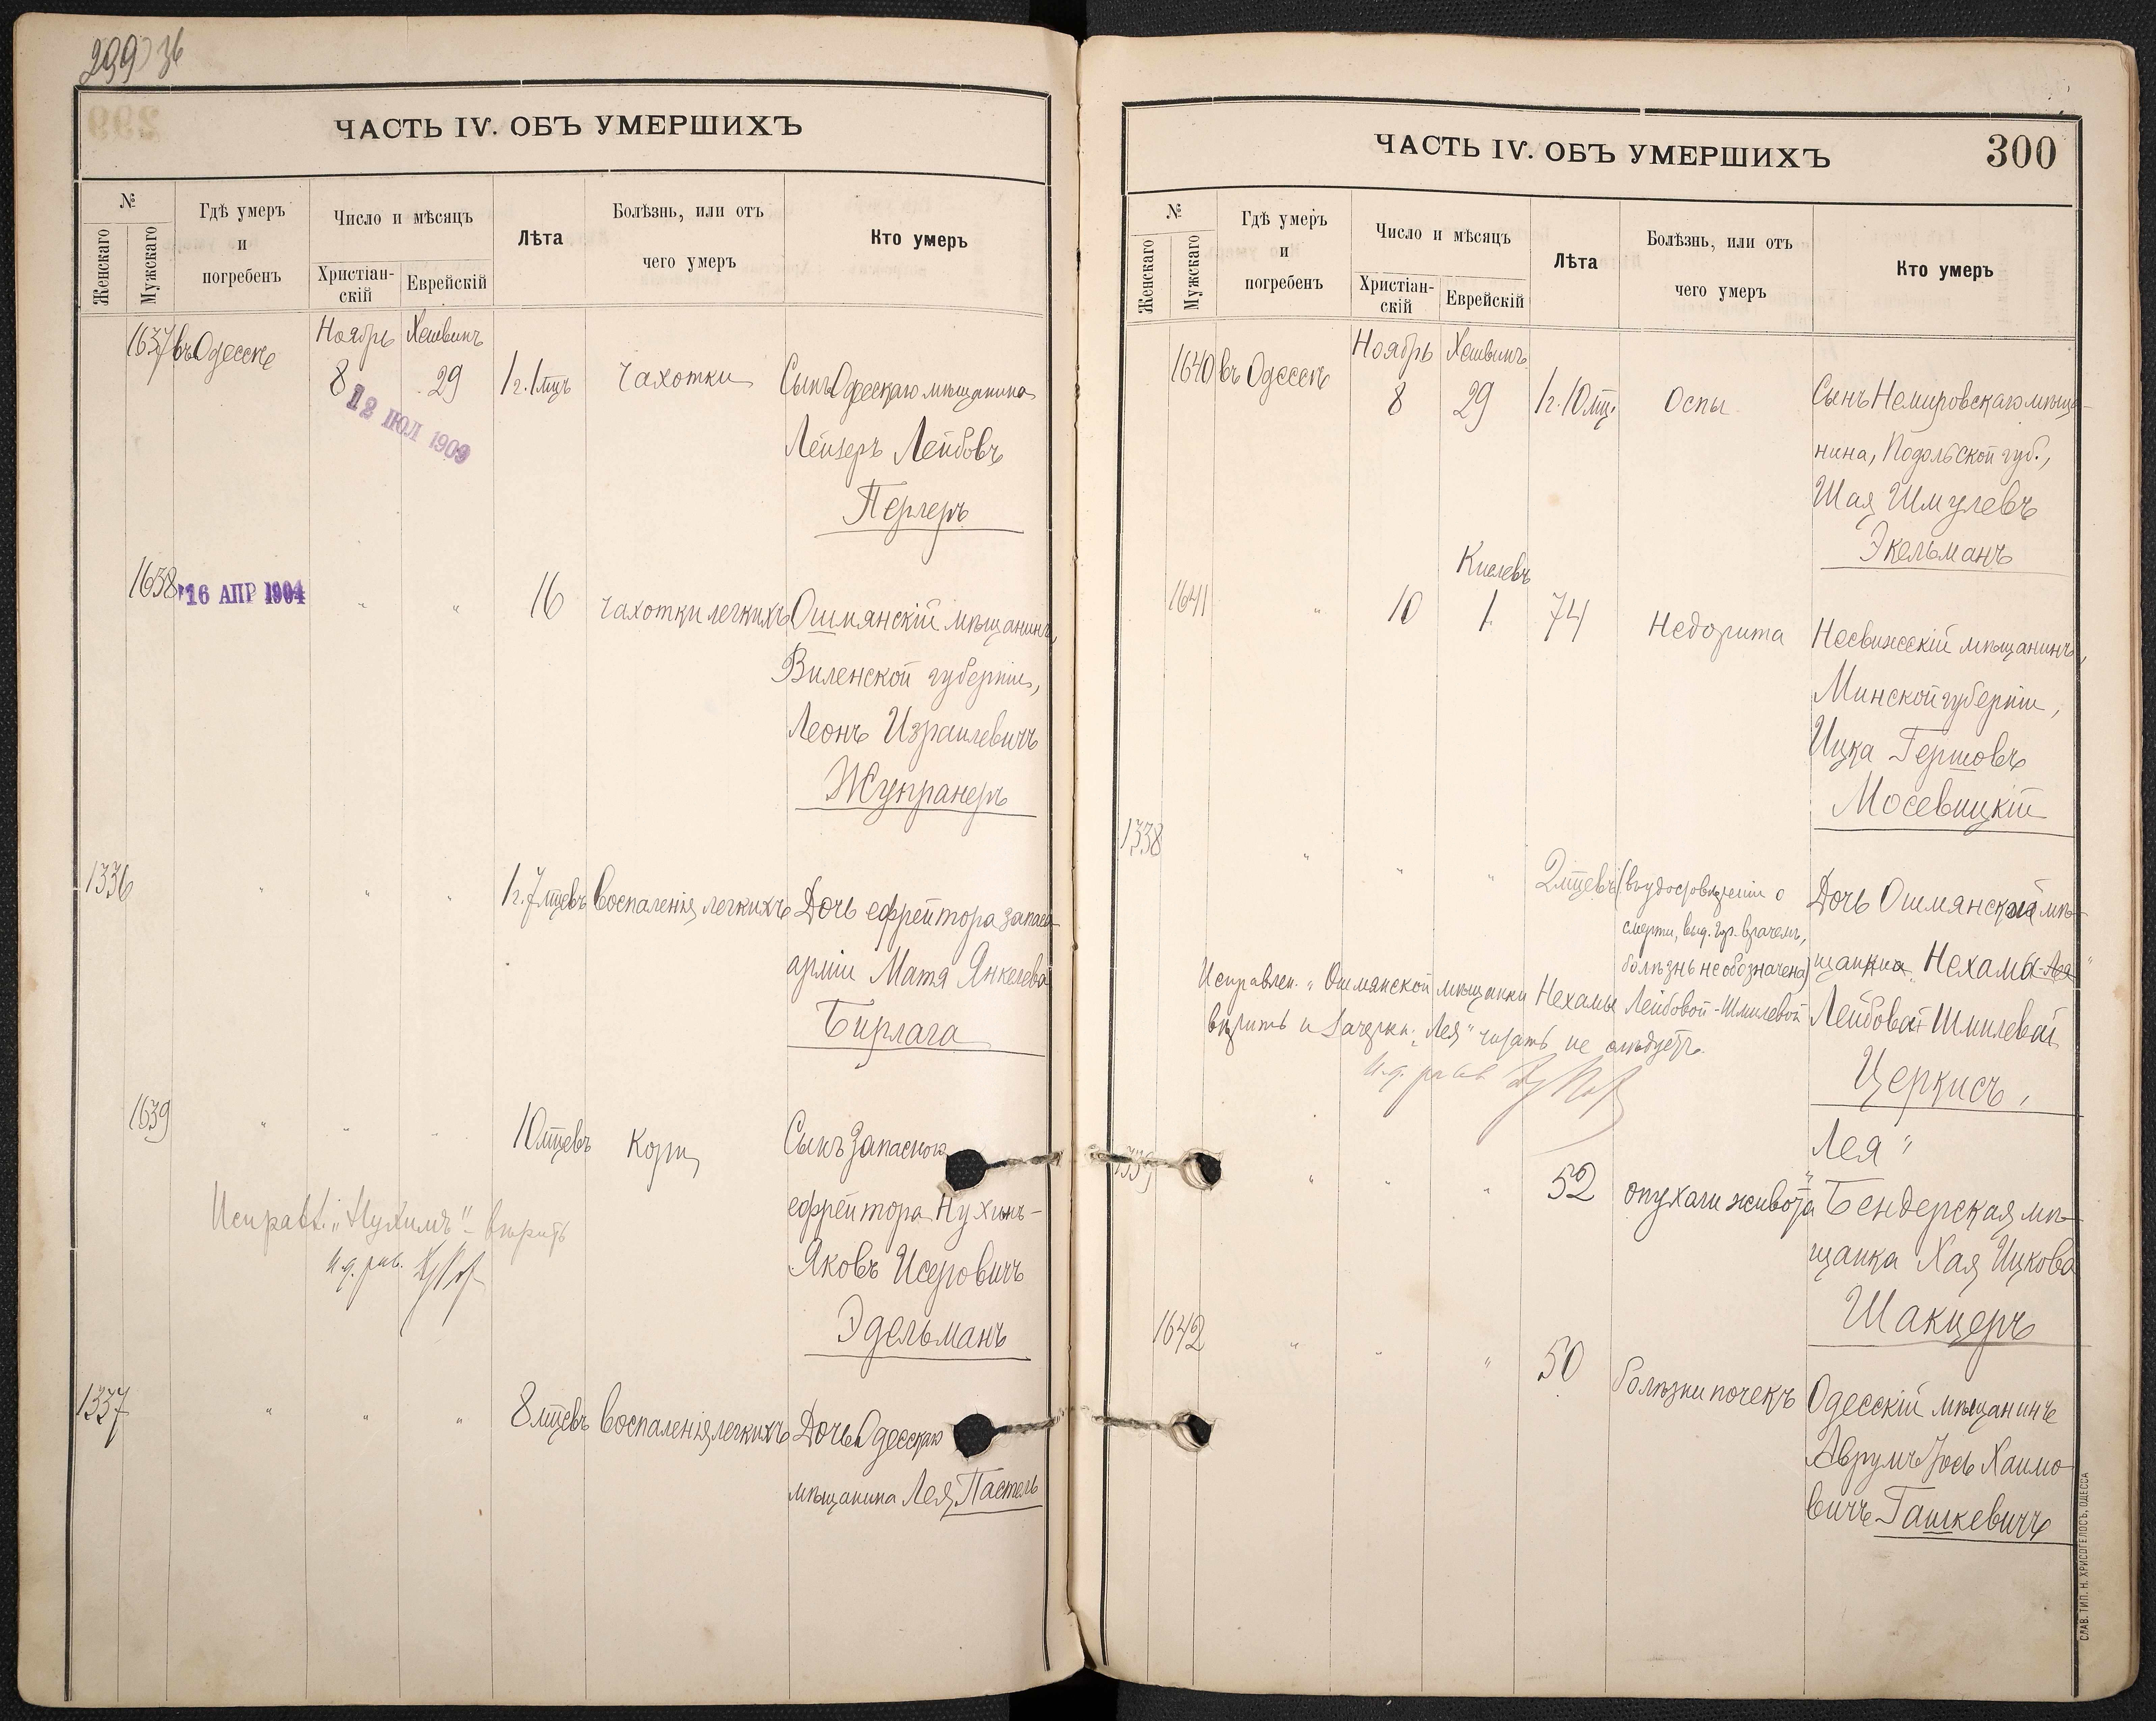 299 зв
ЧАСТЬ IV. ОБЪ УМЕРШИХЪ
№
Женскаго
Мужскаго
Гдѣ умеръ
и
погребенъ
Число и мѣсяцъ
Христіан-
скій
Еврейскій
Лѣта
Болѣзнь, или отъ
чего умеръ
Кто умеръ
Ноябрь Хешвинъ
1637 въ Одессѣ 8 29 1 г. 1 мцъ Чахотки Сынъ Одесскаго мѣщанина
12 ІЮЛ 1909
Лейзеръ Лейбовъ
Перлеръ
1638 16 АПР 1904 " " 16 Чахотки легкихъ Ошмянскій мѣщанинъ,
Виленской губерніи,
Леонъ Израилевичъ
Жупранеръ
1336 " " " 1 г. 7 мцевъ Воспаленія легкихъ Дочь ефрейтора запаса
арміи Матя Янкелева
Бирлага
1639 " " " 10 мцевъ Кори Сынъ запаснога
ефрейтора Нухинъ-
Исправл. "Нухимъ" - вѣрить
Яковъ Исеровичъ
и. д. рав.
Эдельманъ
1337 " " " 8 мцевъ Воспаленія легкихъ Дочь Одесскаго
мѣщанина Лея Пастель
ЧАСТЬ IV. ОБЪ УМЕРШИХЪ
300
№
Женскаго
Мужскаго
Гдѣ умеръ
и
погребенъ
Число и мѣсяцъ
Христіан-
скій
Еврейскій
Лѣта
Болѣзнь, или отъ
чего умеръ
Кто умеръ
Ноябрь Хешвинъ
1640 въ Одессѣ 8 29 1 г. 10 мц. Оспы Сынъ Немировскаго мѣща-
нина, Подольской губ.,
Шая Шмулевъ
Экельманъ
Кислевъ
1641 " 10 1. 74 Нефрита Несвижскій мѣщанинъ,
Минской губерніи,
Ицка Гершовъ
Мосевицкій
1338 " " " 2 мцевъ (въ удостовѣреніи о Дочь Ошмянской мѣ-
смерти, выд. гор. врачемъ,
болѣзнь не обозначена) щанки Нехама-Лея
Исправлен. "Ошмянской мѣщанки Нехамы Лейбовой-Шмилевой"
вѣрить и зачеркн. "Лея" читать не слѣдуетъ.
Лейбова Шмилевай
и. д. рав.
Церкисъ,
"Лея"
1339 " " " 52 опухали живота Бендерская мѣ-
щанка Хая Ицкова
Шакцеръ
1642 " " " 50 болѣзни почекъ Одесскій мѣщанинъ
Аврумъ Іось Хаимо-
вичъ Гашкевичъ
СЛАВ. ТИП. Н. ХРИСОГЕЛОСЪ, ОДЕССА